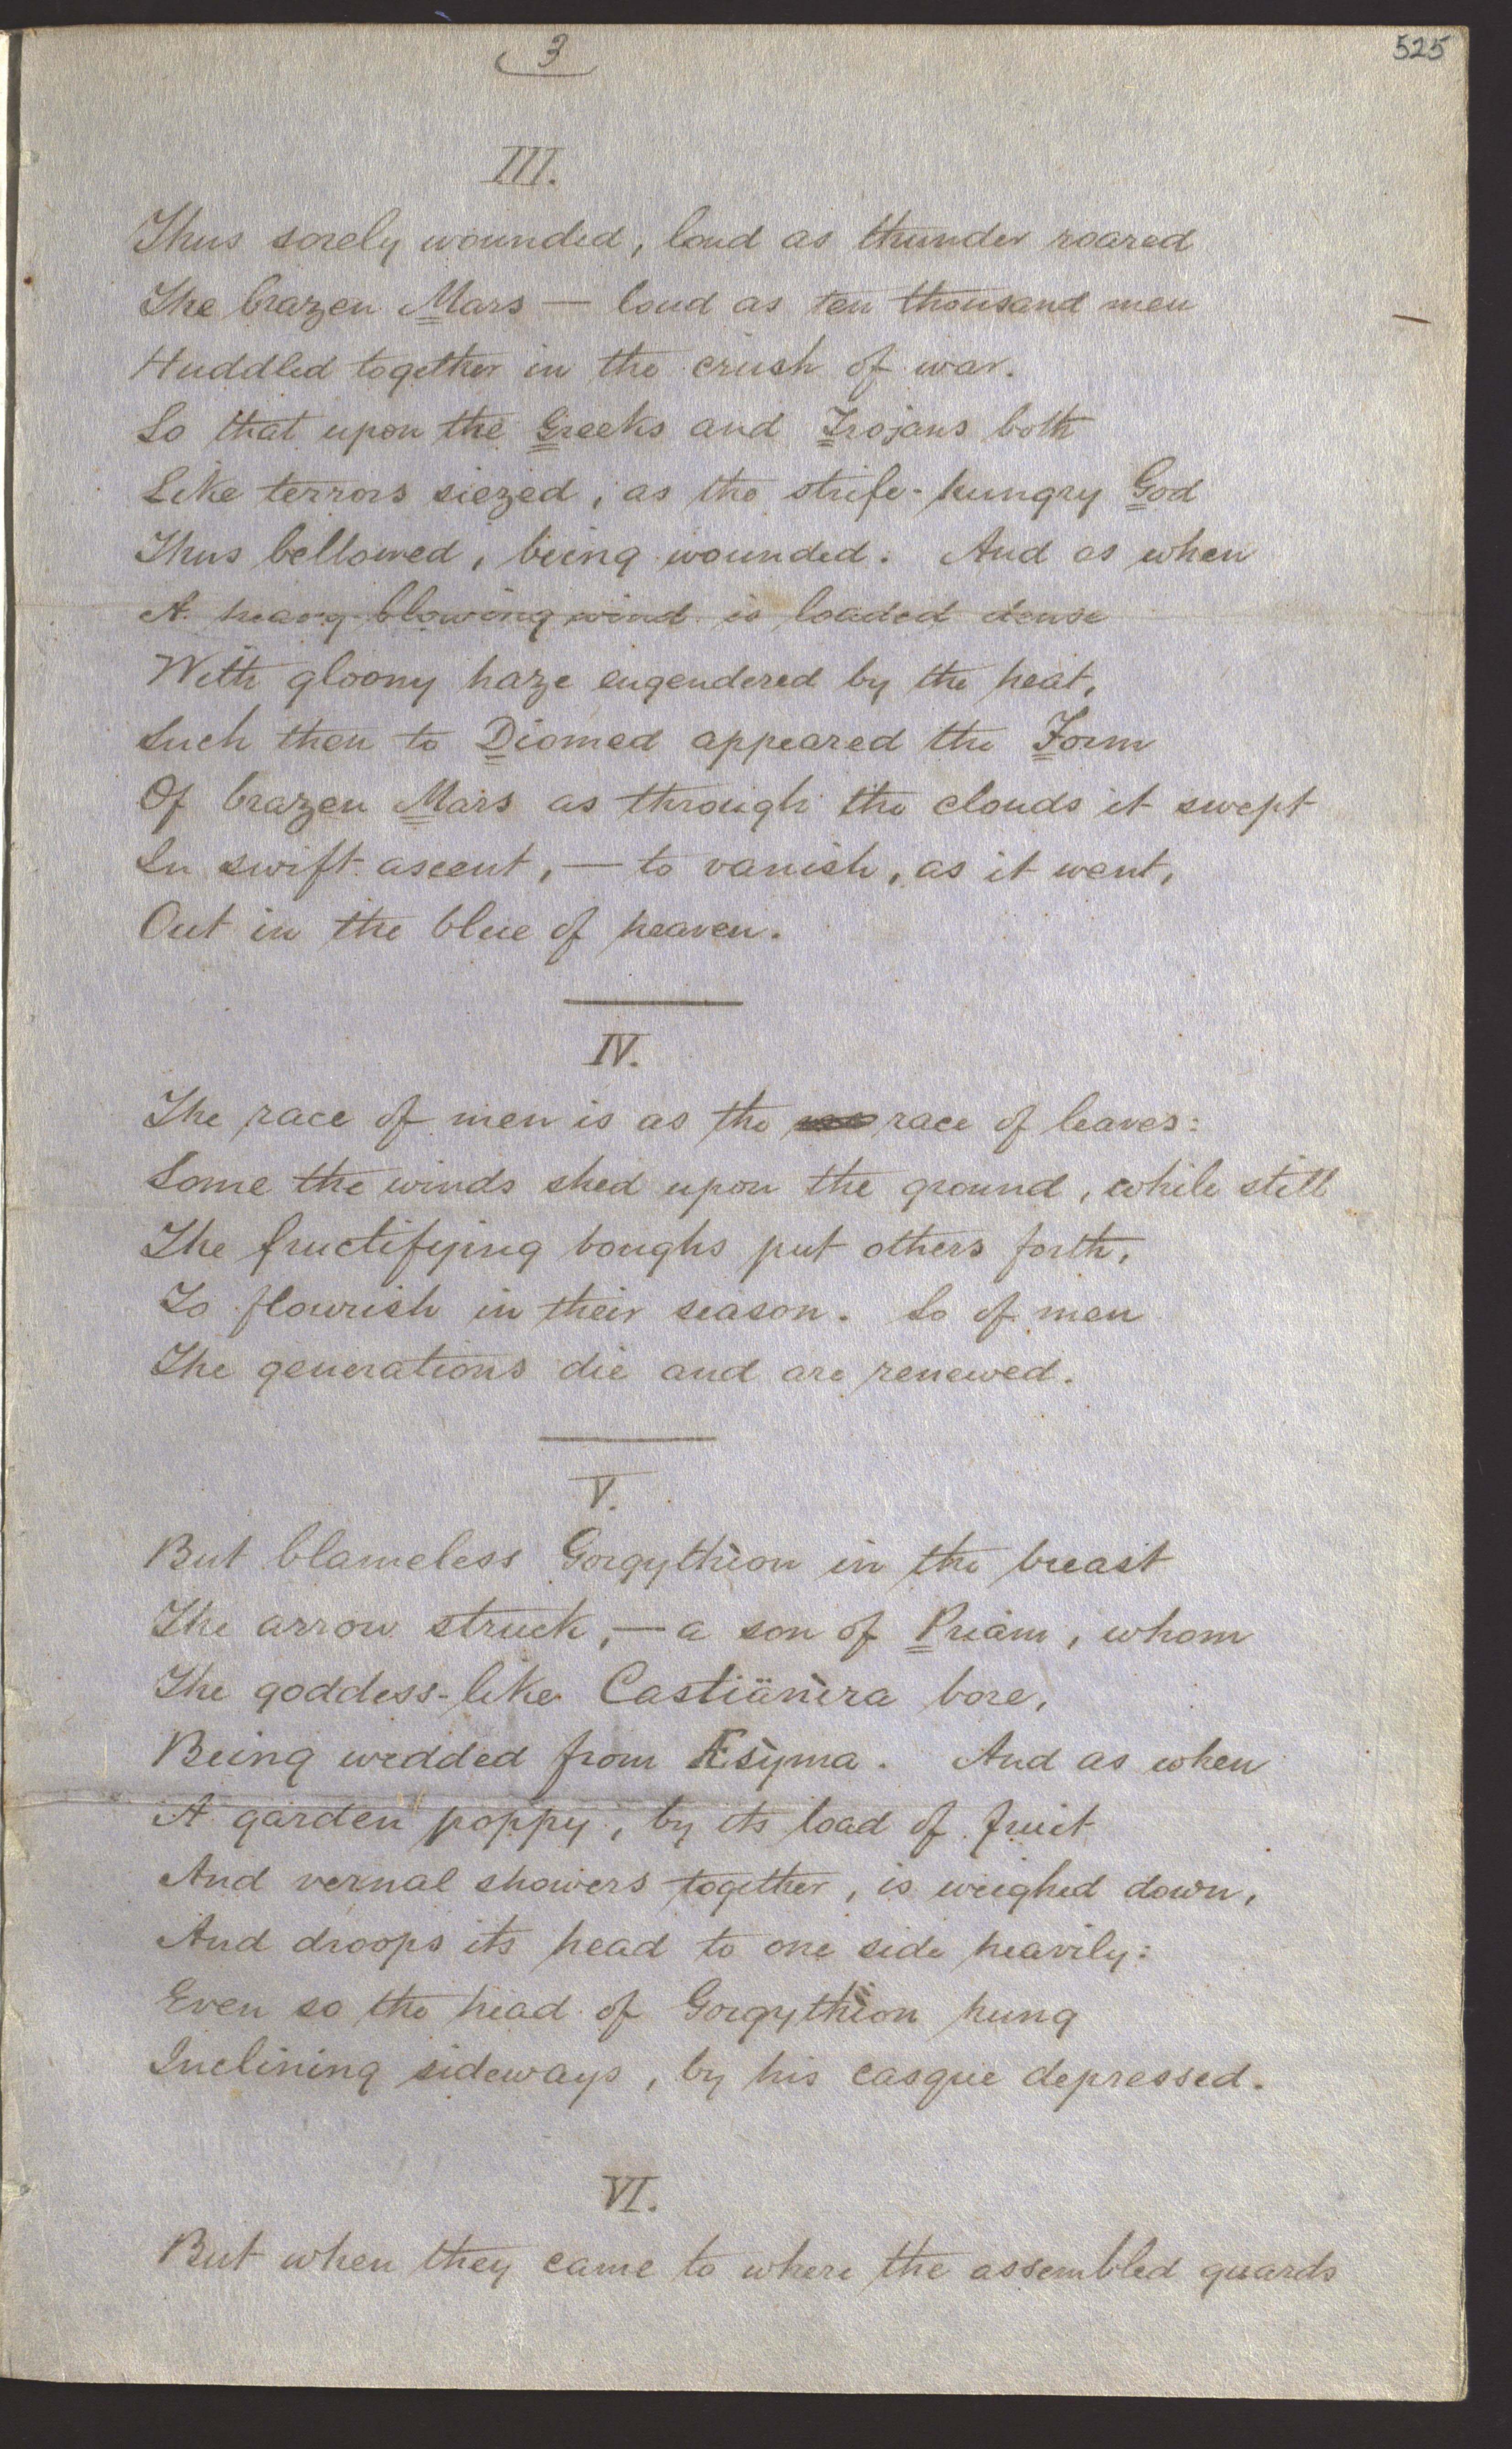 3
525
III.
Thus sorely wounded, loud as thunder roared
The brazen Mars — loud as ten thousand men
Huddled together in the crush of war.
So that upon the Greeks and Trojans both
Like terrors siezed, as the strife-hungry God
Thus bellowed, being wounded. And as when
A heavy-blowing wind is loaded dense
With gloomy haze engendered by the heat,
Such then to Diomed appeared the Form
Of brazen Mars as through the clouds it swept
In swift ascent, — to vanish, as it went,
Out in the blue of heaven.
IV.
The race of men is as the race of leaves:
Some the winds shed upon the ground, while still
The fructifying boughs put others forth,
To flourish in their season. So of men
The generations die and are renewed.
V.
But blameless Gorgythion in the breast
The arrow struck, — a son of Priam, whom
The goddess-like Castiänìra bore,
Being wedded from Æsỳma. And as when
A garden poppy, by its load of fruit
And vernal showers together, is weighed down,
And droops its head to one side heavily:
Even so the head of Gorgythìon hung
Inclining sideways, by his casque depressed.
VI.
But when they came to where the assembled guards